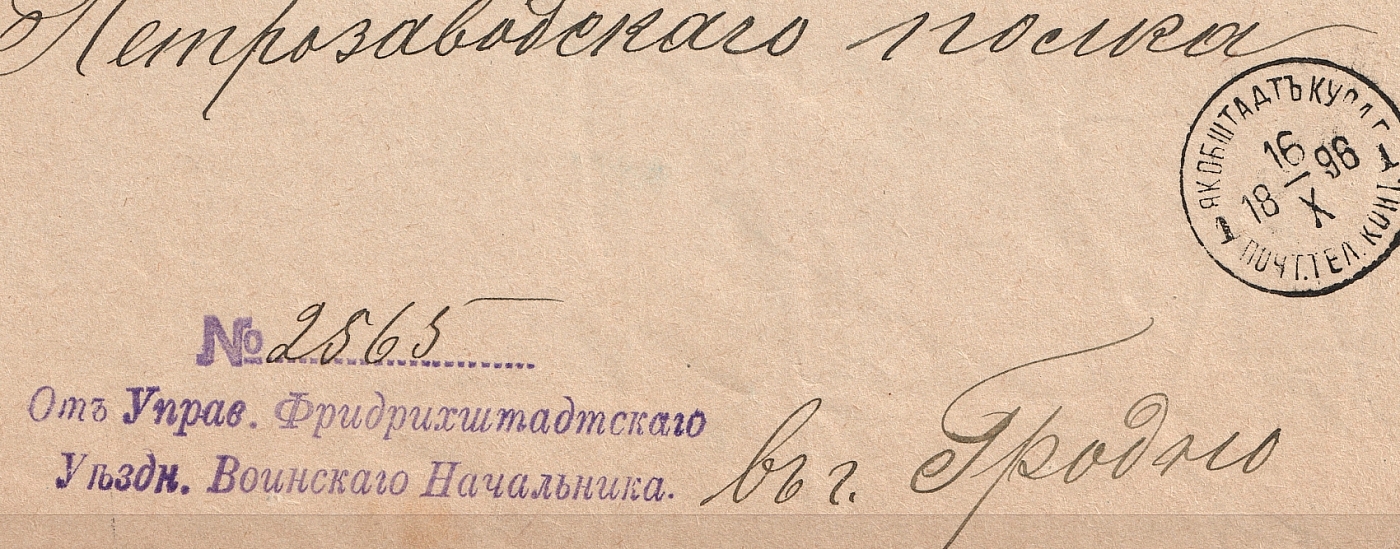 Петрозаводскаго полка
ЯКОБШТАДТЪ КУРЛ. Г.
16
18 – 96
X
ПОЧТ. ТЕЛ. КОНТ.
№ 2565
Отъ Управ. Фридрихштадтскаго
Уѣздн. Воинскаго Начальника.
въ г. Гродно